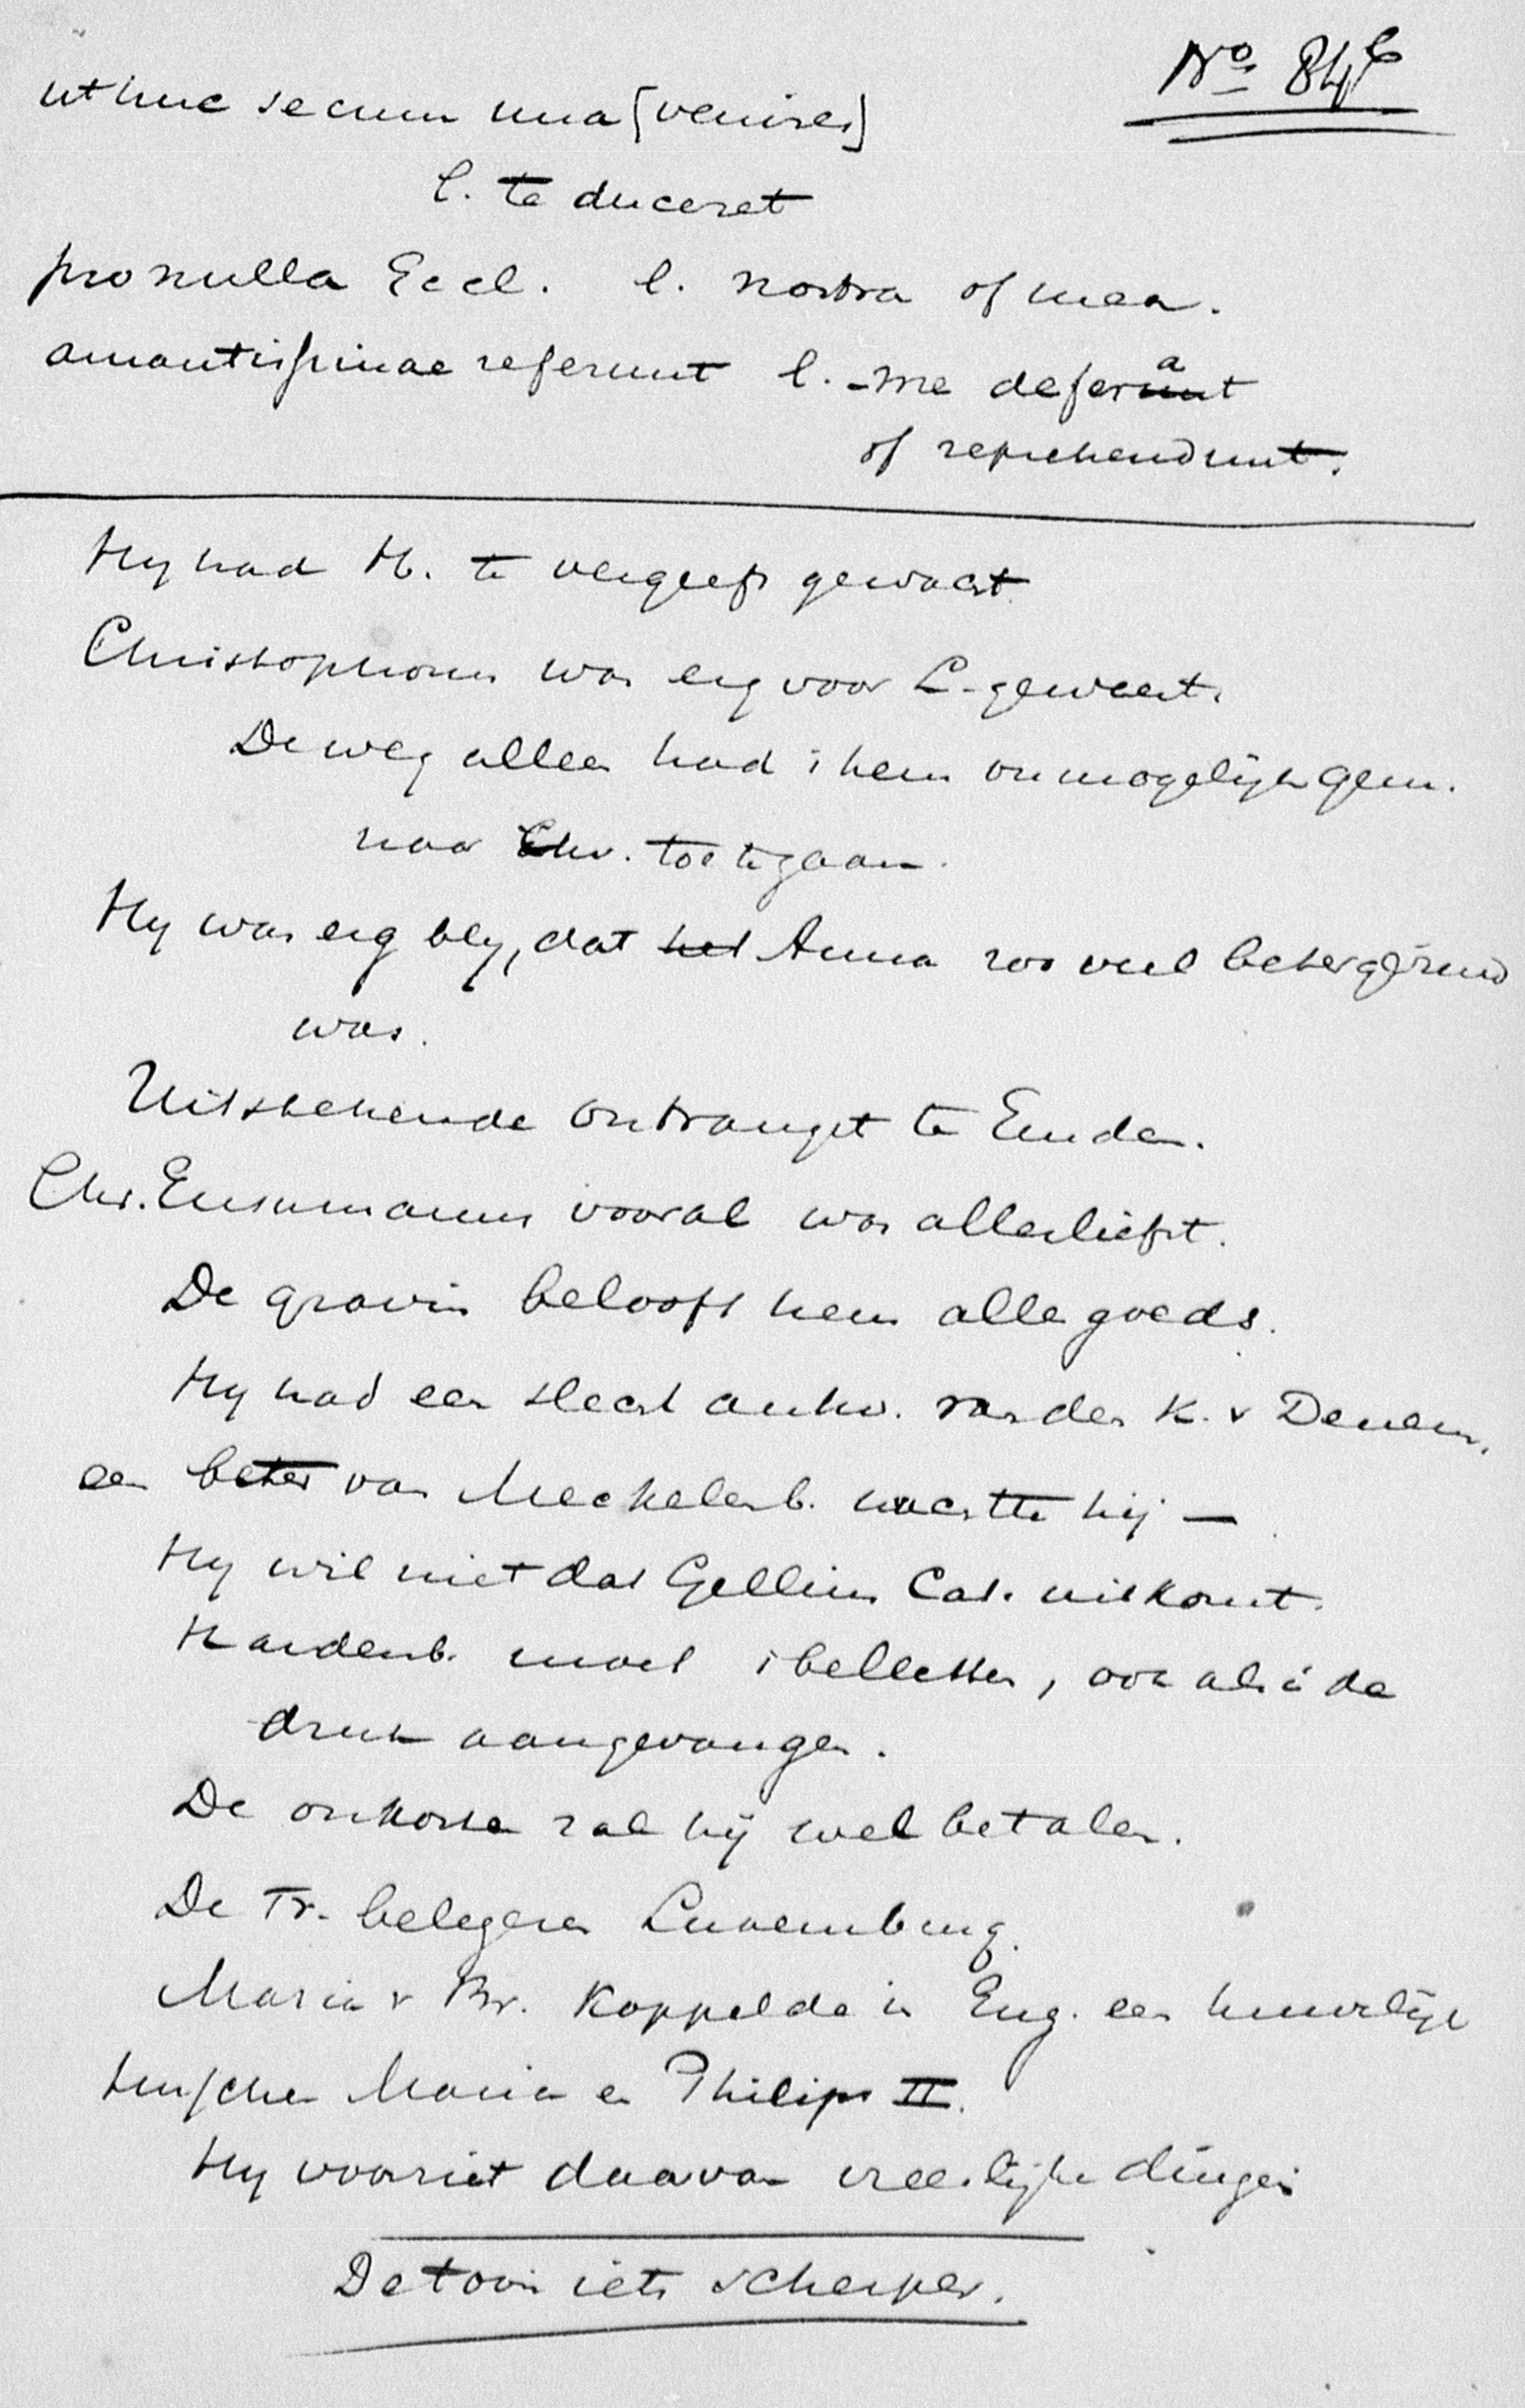 No 84b
ut huc secum una [venires]
l. te duceret
pro nulla Eccl. l. nostra of mea.
amantissimae referunt l. -me deferant
of reprehendunt.
Hy had H. te vergeefs gewacht
Christophorus was erg voor L. geweest.
De weg alleen had 't hem onmogelijk gem.
naar Chr. toe te gaan.
Hy was erg bly, dat het Anna zoo veel beter gezind
was.
Uitstekende ontvangst te Emden.
Chr. vooral was allerliefst.
De gravin belooft hem alle goeds.
Hy had een slecht antw. van den K. v Denem.
een beter van Meckelenb. wachtte hij —
Hy wil niet dat Gellius Cat. uitkomt.
Hardenb. moet 't beletten, ook als is de
druk aangevangen.
De onkosten zal hij wel betalen.
De Fr. belegeren Luxemburg.
Maria v Br. koppelde in Eng. een huwelijk
tusschen Maria en Philips II.
Hy voorziet daarvan vreeslijke dingen
De toon iets scherper.